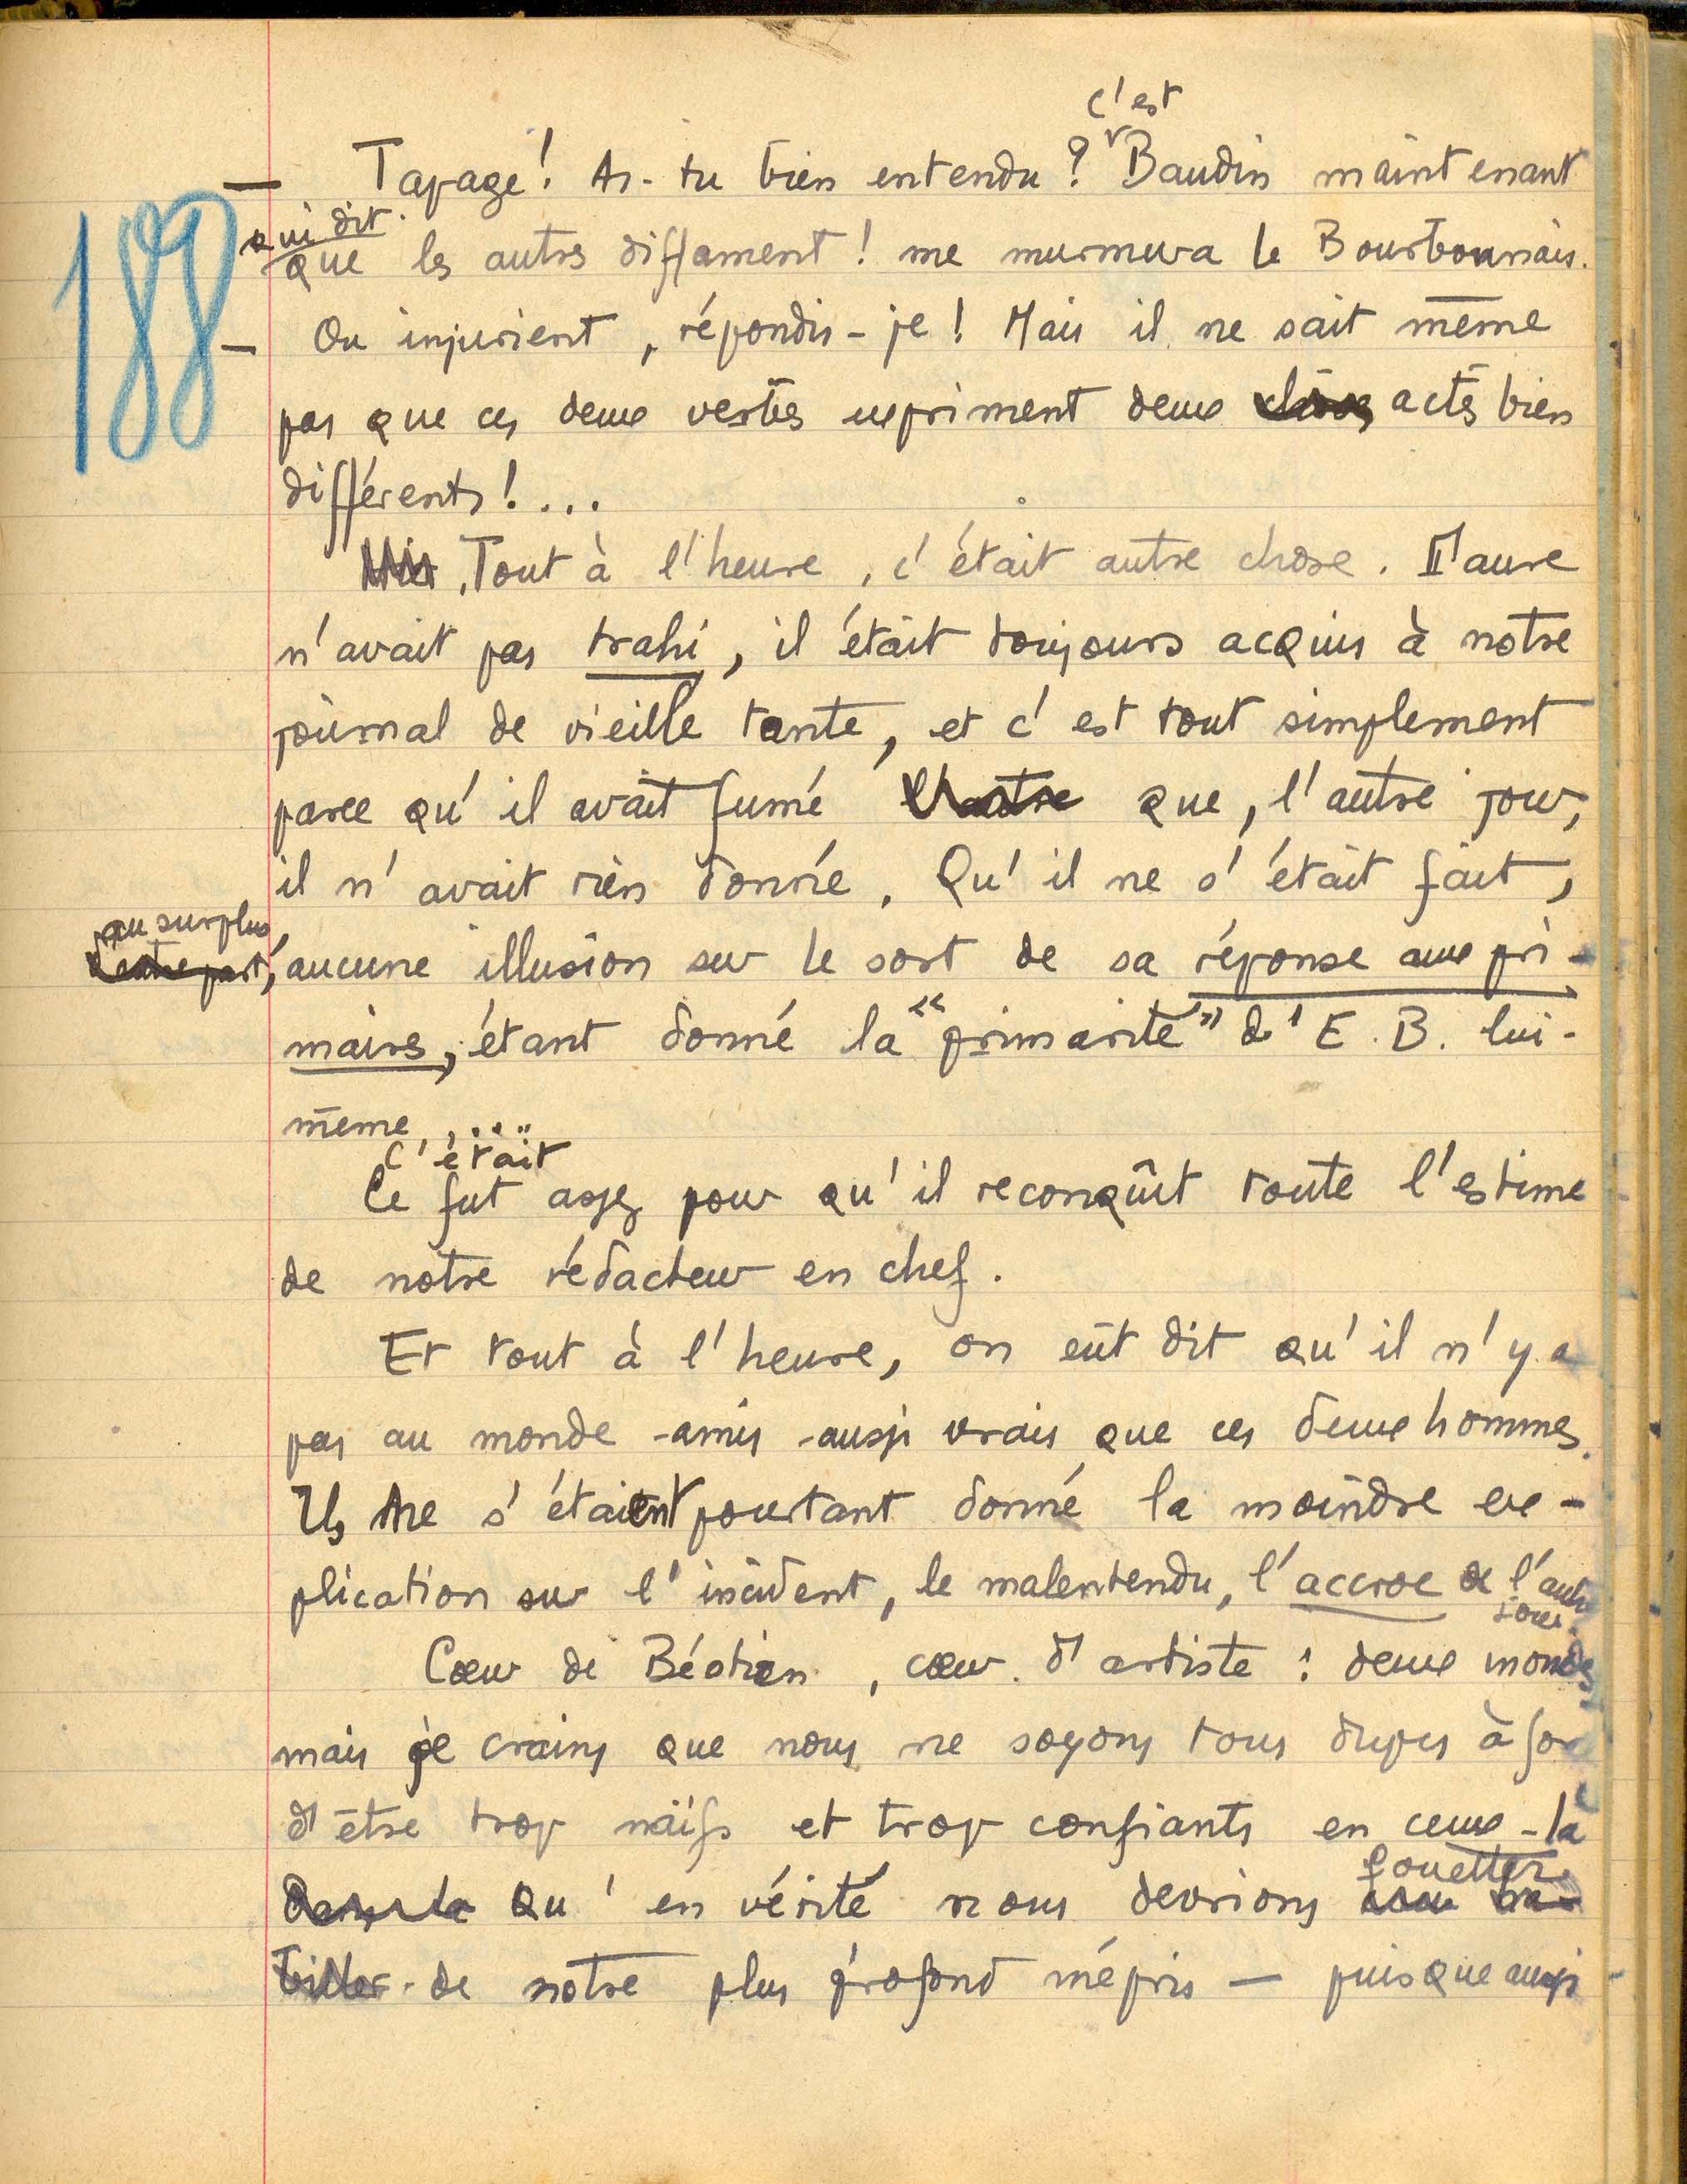 188
c'est
— Tapage! As-tu bien entendu? Baudin maintenant
qui dit
que les autres diffament! me murmura le Bourbonnais.
— Ou injurient, répondis-je! Mais il ne sait même
pas que ces deux verbes expriment deux actes bien
différents!...
Tout à l'heure, c'était autre chose. Maure
n'avait pas trahi, il était toujours acquis à notre
journal de vieille tante, et c'est tout simplement
parce qu'il avait fumé que, l'autre jour,
il n'avait rien donné. Qu'il ne s'était fait,
au surplus,
d'autre part,
aucune illusion sur le sort de sa réponse aux pri-
maires, étant donné la "primarité" d'E. B. lui-
même.....
c'était
Ce fut assez pour qu'il reconquît toute l'estime
de notre rédacteur en chef.
Et tout à l'heure, on eût dit qu'il n'y a
pas au monde amis aussi vrais que ces deux hommes.
Ils ne s'étaient pourtant donné la moindre ex-
plication sur l'incident, le malentendu, l'accroc de l'autre
jour.
Cœur de Béotien, cœur d'artiste : deux mondes
mais je crains que nous ne soyons tous dupes à for
d'être trop naïfs et trop confiants en ceux-là
fouetter
qu'en vérité nous devrions
de notre plus profond mépris — puisque aussi